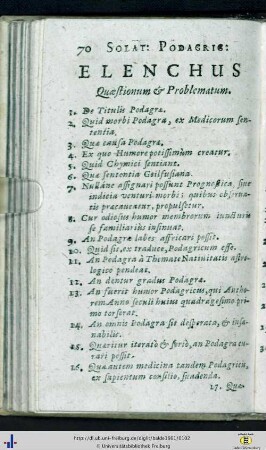 70 SOLAT: PODAGRIC:
ELENCHUS
Quæstionum & Problematum.
1. De Titulis Podagræ.
2. Quid morbi Podagra, ex Medicorum sen-
tentia.
3. Quæ causa Podagræ.
4. Ex quo Humore potissimùm creatur.
5. Quid Chymici sentiant.
6. Quæ sententia
7. Nullane assignari possunt Prognostica, sive
indicia venturi morbi; quibus
præcaveatur, propulsetur.
8. Cur odiosus humor membrorum juncturis
se familiariùs insinuat.
9. An Podagræ labes affricari possit.
10. Quid sit, ex traduce, Podagricum esse.
11. An Podagra à Themate Nativitatis astro-
logico pendeat.
12. An dentur gradus Podagræ.
13. An fuerit humor Podagricus, qui Autho-
rem Anno seculi hujus quadragesimo pri-
mo torserat.
14. An omnis Podagra sit desperata, & insa-
nabilis.
15. Quæritur iteratò & seriò, an Podagra cu-
rari possit.
16. Quæ autem medicina tandem Podagricis,
ex sapientum consilio, suadenda.
17. Quæ-
http://dl.ub.uni-freiburg.de/diglit/balde1661/0102
© Universitätsbibliothek Freiburg